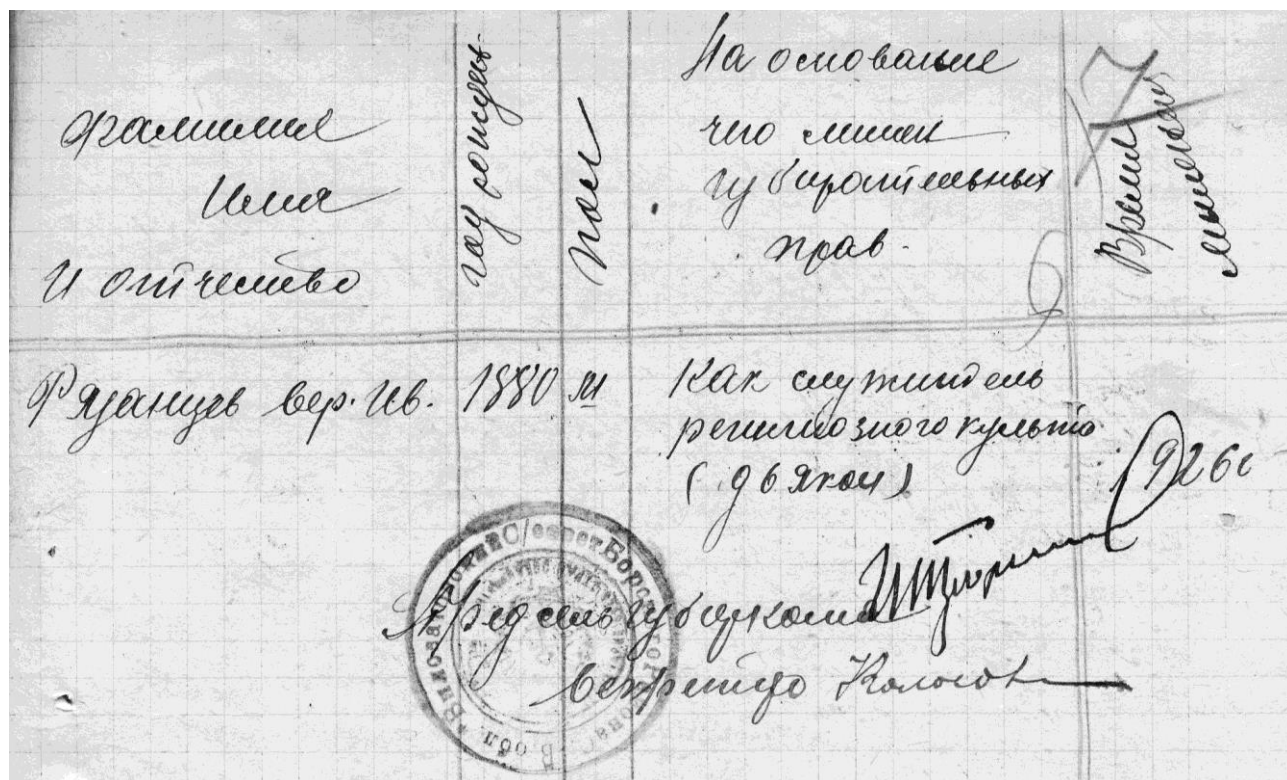 Фамилия
Имя
И отчество
год рожден
пол
На основание
чего лишен
избирательных
прав.
Время
лишения
Рязанцев Сер. Ив.
1880
м
Как служитель
религиозного культа
(дьякон)
1926г
Пред сельизбиркома
Секретарь Колосов